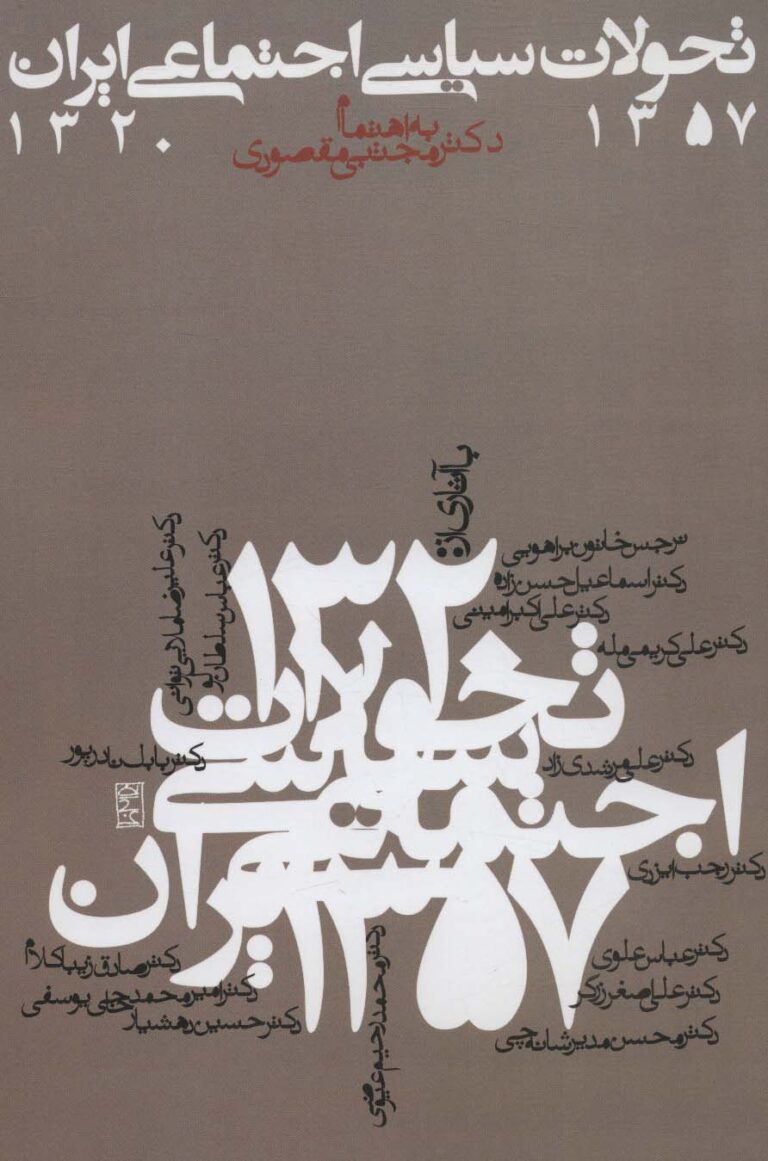 تحولات سیاسی اجتماعی ایران
۱۳۲۰ ۱۳۵۷
به اهتمام
دکتر مجتبی مقصودی
با آثاری از:
نرجس خاتون براهویی
دکتر اسماعیل حسن زاده
دکتر علی اکبر امینی
دکتر علی کریمی مله
دکتر علی مرشدی زاد
دکتر رجب ایزدی
دکتر عباس علوی
دکتر علی اصغر زرگر
دکتر محسن مدیر شانه چی
دکتر محمد رحیم عیوضی
دکتر صادق زیبا کلام
دکتر امیر محمد حاجی یوسفی
دکتر حسین رهشیار
دکتر بابک نادرپور
دکتر علیرضا ملایی توانی
دکتر عباس سلطان لو
۱۳۲۰
تحولات
سیاسی
اجتماعی
ایران
۱۳۵۷